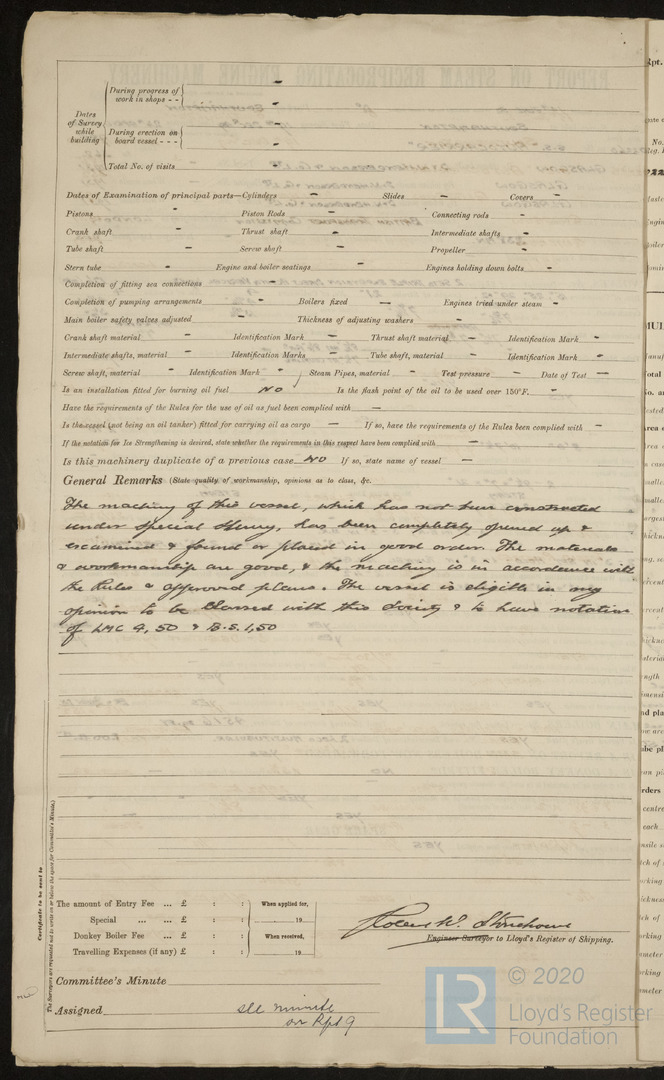 During progress of
work in shops - - -
Dates
of Survey
while
building
During erection on
board vessel - - - -
Total No. of visits
Dates of Examination of principal parts—Cylinders - Slides - Covers -
Pistons - Piston Rods - Connecting rods -
Crank shaft - Thrust shaft - Intermediate shafts -
Tube shaft - Screw shaft - Propeller -
Stern tube - Engine and boiler seatings - Engines holding down bolts -
Completion of fitting sea connections -
Completion of pumping arrangements - Boilers fixed - Engines tried under steam -
Main boiler safety valves adjusted - Thickness of adjusting washers -
Crank shaft material - Identification Mark - Thrust shaft material - Identification Mark -
Intermediate shafts, material - Identification Marks - Tube shaft, material - Identification Mark -
Screw shaft, material - Identification Mark - Steam Pipes, material - Test pressure - Date of Test -
Is an installation fitted for burning oil fuel NO Is the flash point of the oil to be used over 150°F. -
Have the requirements of the Rules for the use of oil as fuel been complied with -
Is the vessel (not being an oil tanker) fitted for carrying oil as cargo - If so, have the requirements of the Rules been complied with -
If the notation for Ice Strengthening is desired, state whether the requirements in this respect have been complied with -
Is this machinery duplicate of a previous case NO If so, state name of vessel -
General Remarks (State quality of workmanship, opinions as to class, &c.
The machiny of this vessel, which has not been constructed
under Special Survey, has been completely opened up &
examined & found or placed in good order. The materials
& workmanship are good, & the machiny is in accordance with
the Rules & approved plans. The vessel is eligible in my
opinion to be Classed with this Society & to have notation
of LMC 4,50 & B.S. 1,50
The amount of Entry Fee ... £ : :
Special ... ... £ : :
Donkey Boiler Fee ... £ : :
Travelling Expenses (if any) £ : :
When applied for,
19
When received,
19
Engineer Surveyor to Lloyd's Register of Shipping.
Committee's Minute
Assigned
see minute
on Rpt 9
Certificate to be sent to
(The Surveyors are requested not to write on or below the space for Committee's Minute.)
LR
© 2020
Lloyd's Register
Foundation